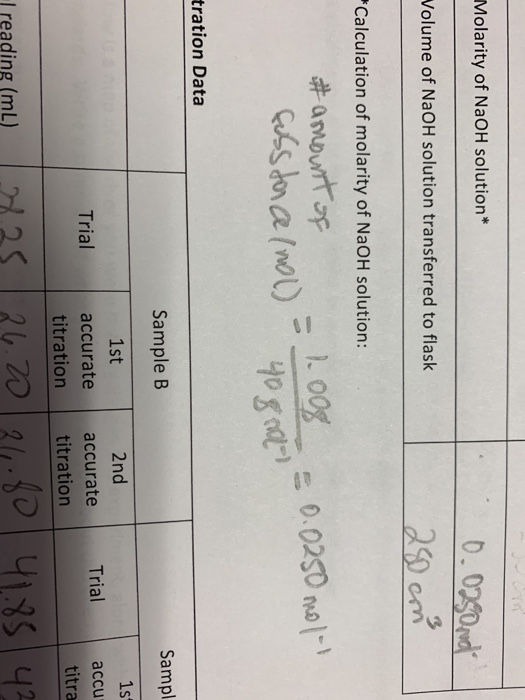 Molarity of NaOH solution* 0.0250mol⁻¹
Volume of NaOH solution transferred to flask 250 cm³
*Calculation of molarity of NaOH solution:
# amount of
substance (mol) = 1.00g / 40 g mol⁻¹ = 0.0250 mol⁻¹
tration Data
Sample B Sampl
Trial 1st accurate titration 2nd accurate titration Trial 1s accu titra
l reading (mL) 28.25 26.20 26.80 41.85 42